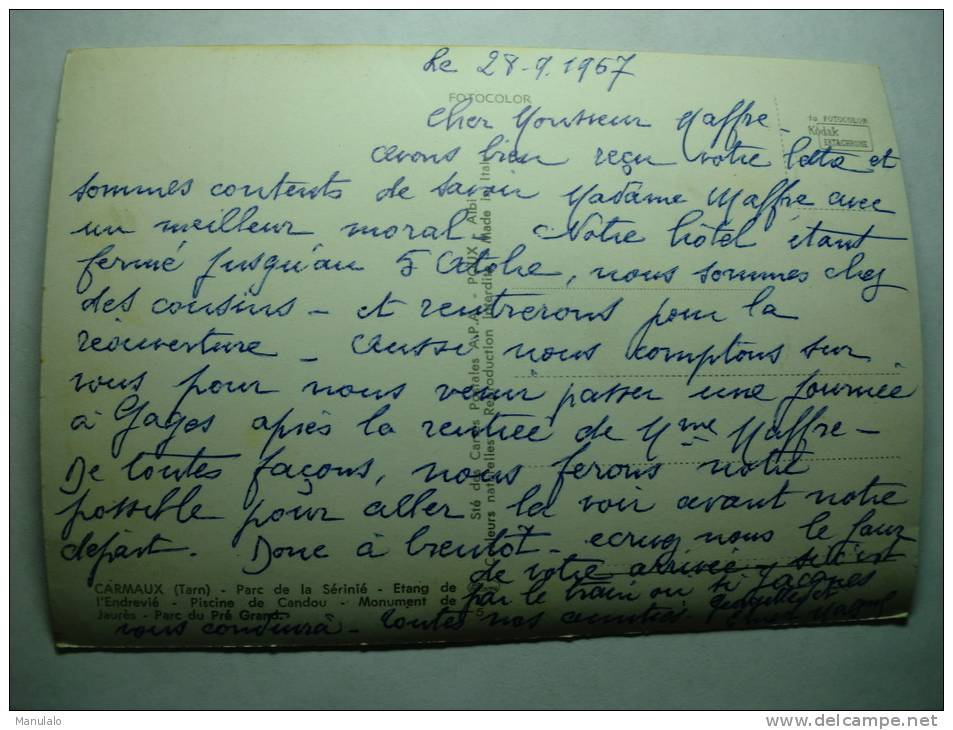 Le 28-9.1967
FOTOCOLOR
Cher Monsieur Maffre -
da FOTOCOLOR
Kodak
EKTACHROME
avons bien reçu votre lettre et
sommes contents de savoir Madame Maffre avec
un meilleur moral. Notre hôtel étant
fermé jusqu'au 5 Octobre, nous sommes chez
des cousins - et rentrerons pour la
réouverture - Aussi nous comptons sur
vous pour nous venir passer une journée
à Gages après la rentrée de Mme Maffre -
De toutes façons, nous ferons notre
possible pour aller la voir avant notre
départ. Donc à bientôt - ecrivez nous le jour
de votre arrivée si c'est
par le train ou si Jacques
vous conduira - Toutes nos amitiés.
CARMAUX (Tarn) - Parc de la Sérinié - Etang de
l'Endrevié - Piscine de Candou - Monument de
Jaurès - Parc du Pré Grand.
Sté des Cartes Postales A.P.A. - POUX - Albi
Couleurs naturelles Reproduction Interdite Made in Italy
Manulalo
www.delcampe.net